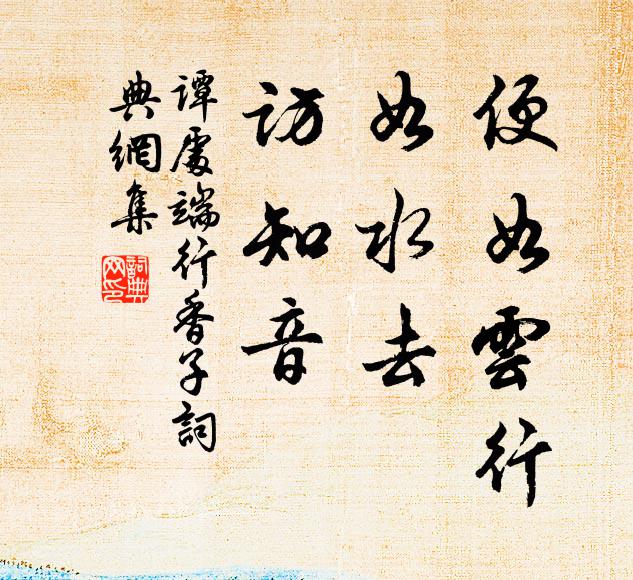 便如雲行
如水去
訪知音
譚處端行香子詞
典網集
詞典網印